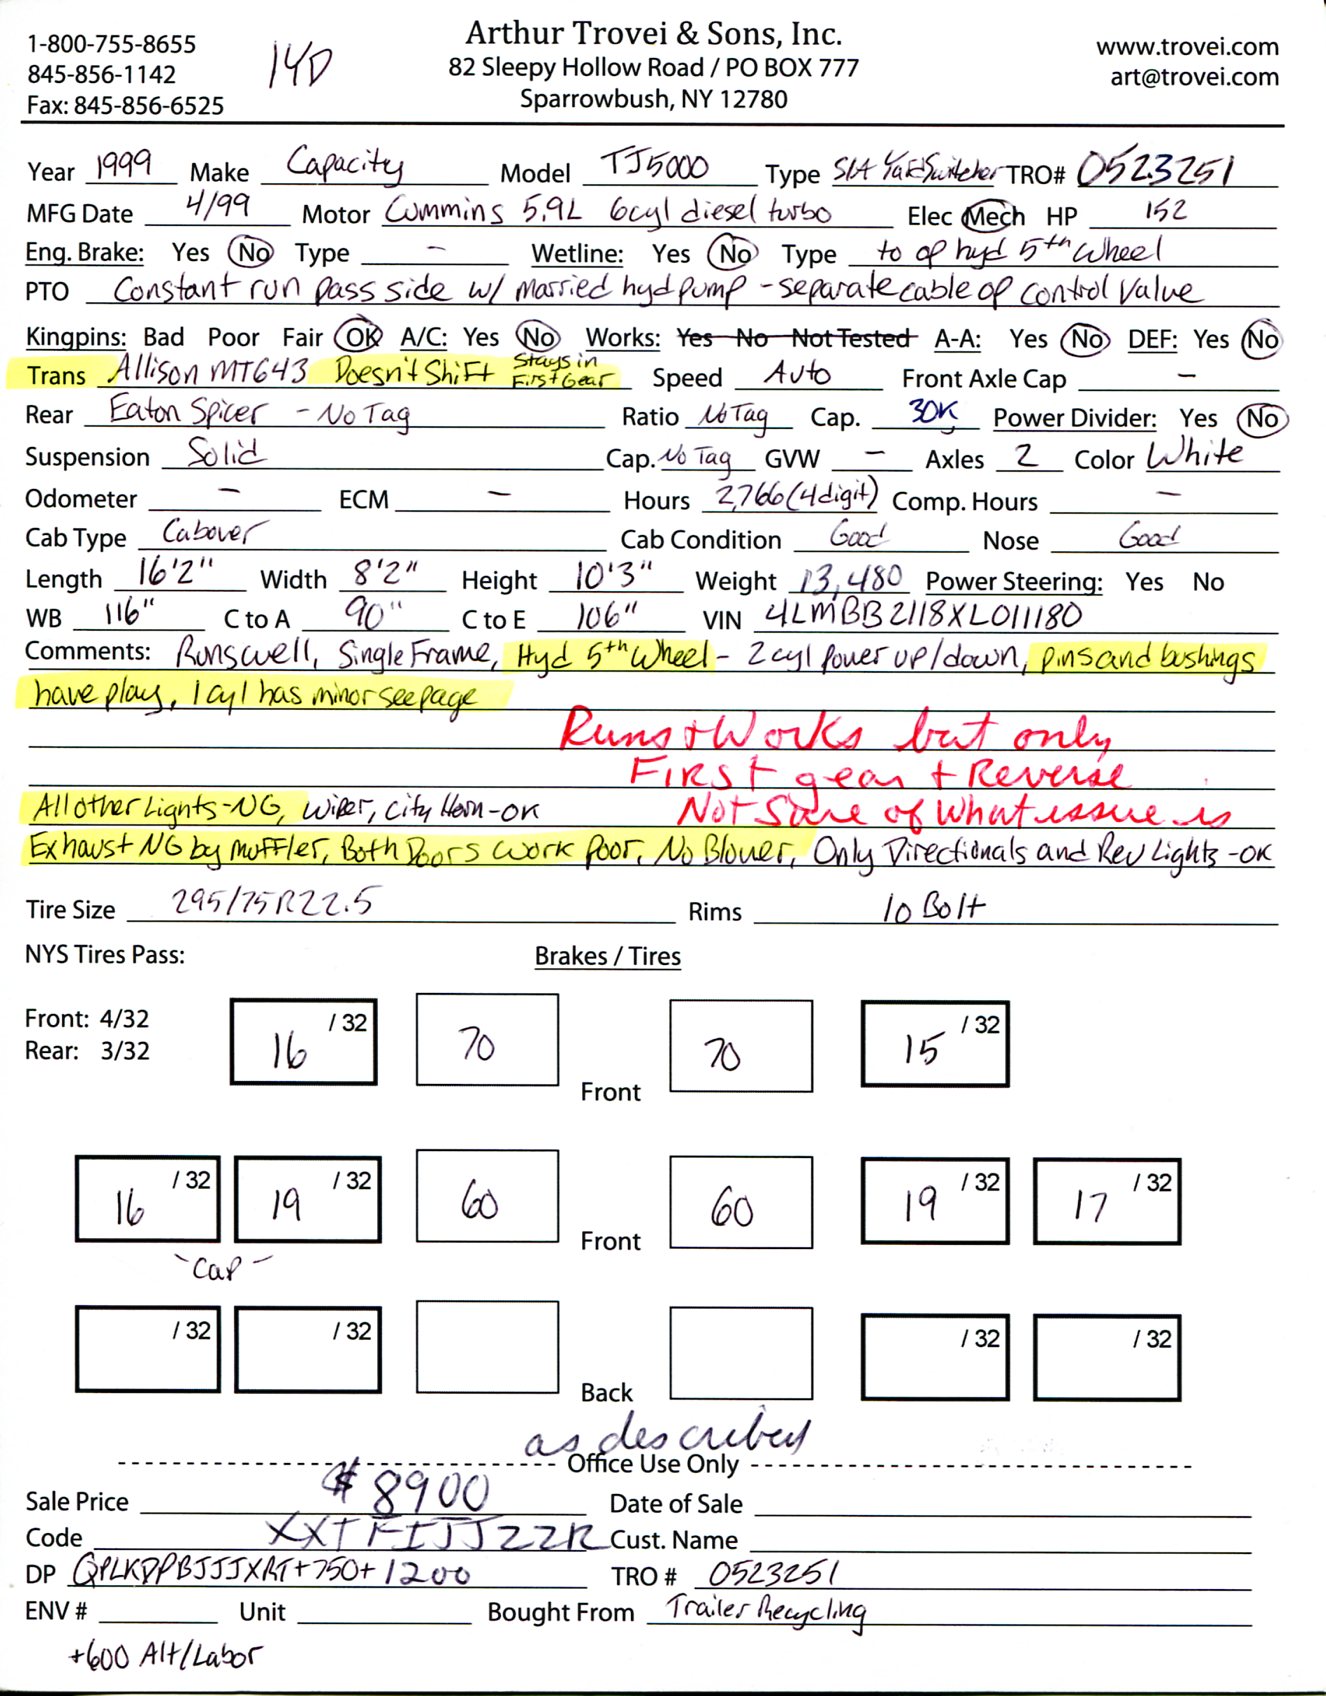 Arthur Trovei & Sons, Inc.
82 Sleepy Hollow Road / PO BOX 777
Sparrowbush, NY 12780
1-800-755-8655
845-856-1142
Fax: 845-856-6525
14D
www.trovei.com
art@trovei.com
Year 1999 Make Capacity Model TJ5000 Type S/A Yard Switcher TRO# 0523251
MFG Date 4/99 Motor Cummins 5.9L 6cyl diesel turbo Elec Mech HP 152
Eng. Brake: Yes No Type - Wetline: Yes No Type to op hyd 5th wheel
PTO Constant run pass side w/ married hyd pump - separate cable op control valve
Kingpins: Bad Poor Fair OK A/C: Yes No Works: Yes No Not Tested A-A: Yes No DEF: Yes No
Trans Allison MT643 Doesn't Shift Stays in First Gear Speed Auto Front Axle Cap -
Rear Eaton Spicer - No Tag Ratio No Tag Cap. 30K Power Divider: Yes No
Suspension Solid Cap. No Tag GVW - Axles 2 Color White
Odometer - ECM - Hours 2,766 (4 digit) Comp. Hours -
Cab Type Cabover Cab Condition Good Nose Good
Length 16'2" Width 8'2" Height 10'3" Weight 13,480 Power Steering: Yes No
WB 116" C to A 90" C to E 106" VIN 4LMBB2118XL011180
Comments: Runs well, Single Frame, Hyd 5th Wheel - 2 cyl power up/down, pins and bushings
have play, 1 cyl has minor seepage
Runs + Works but only
First gear + Reverse
All other Lights - NG, Wiper, City Horn - OK Not Sure of What issue is
Exhaust NG by muffler, Both Doors work poor, No Blower, Only Directionals and Rev Lights - OK
Tire Size 295/75R22.5 Rims 10 Bolt
NYS Tires Pass: Brakes / Tires
Front: 4/32
Rear: 3/32
16 /32 70 Front 70 15 /32
16 /32 19 /32 60 Front 60 19 /32 17 /32
- Cap -
/32 /32 Back /32 /32
as described
Office Use Only
Sale Price $8900 Date of Sale
Code Cust. Name
DP +750+1200 TRO # 0523251
ENV # Unit Bought From Trailer Recycling
+600 Alt/Labor